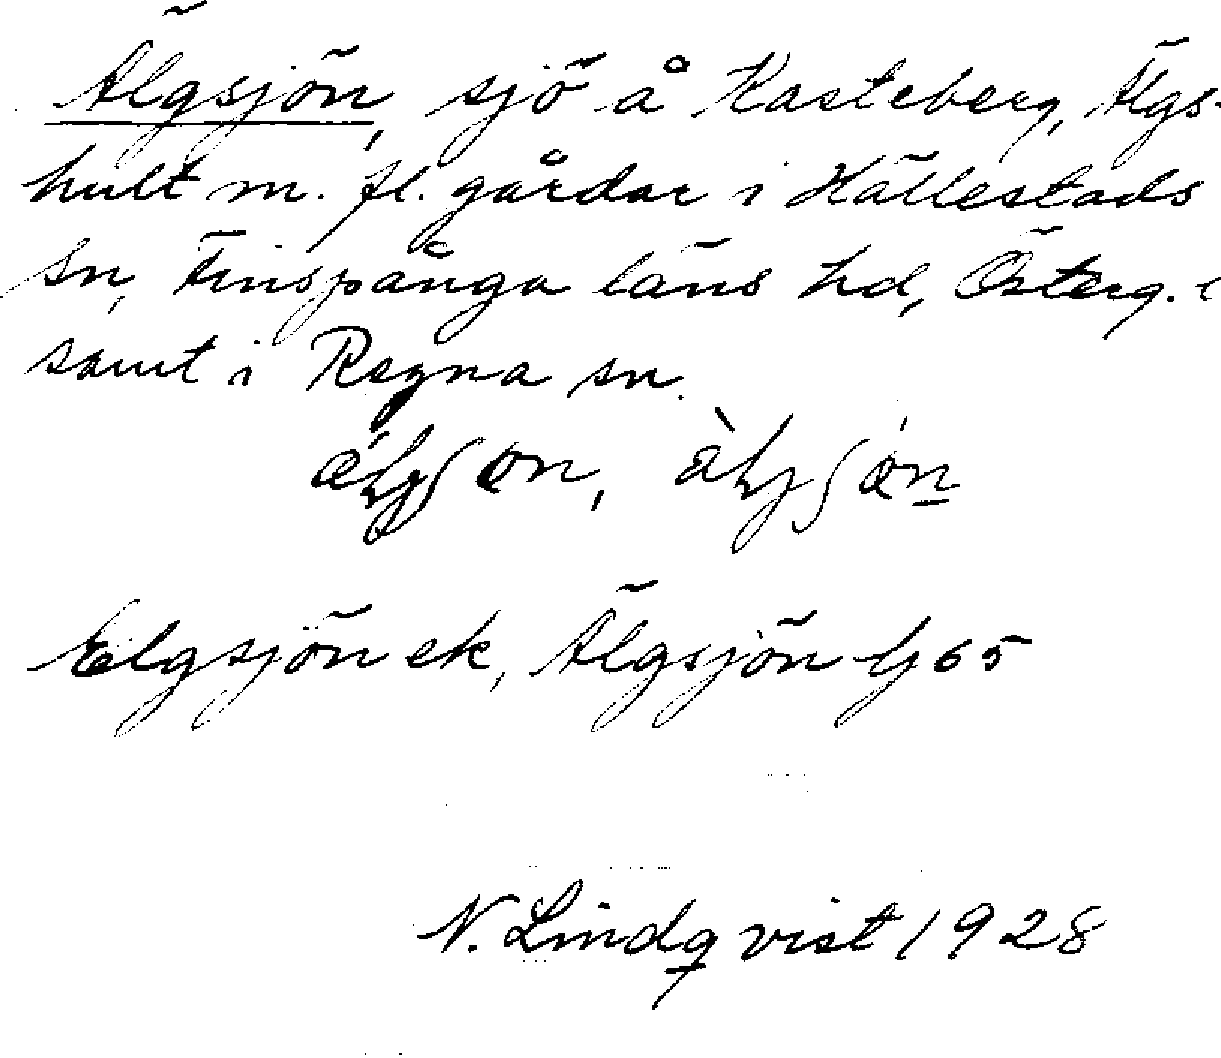 Älgsjön, sjö å Kasteberg, Älgs-
hult m. fl. gårdar i Hällestads
sn, Finspånga läns hd, Österg. l
samt i Regna sn.
Elgsjön ek, Älgsjön Gj 65
N. Lindqvist 1928